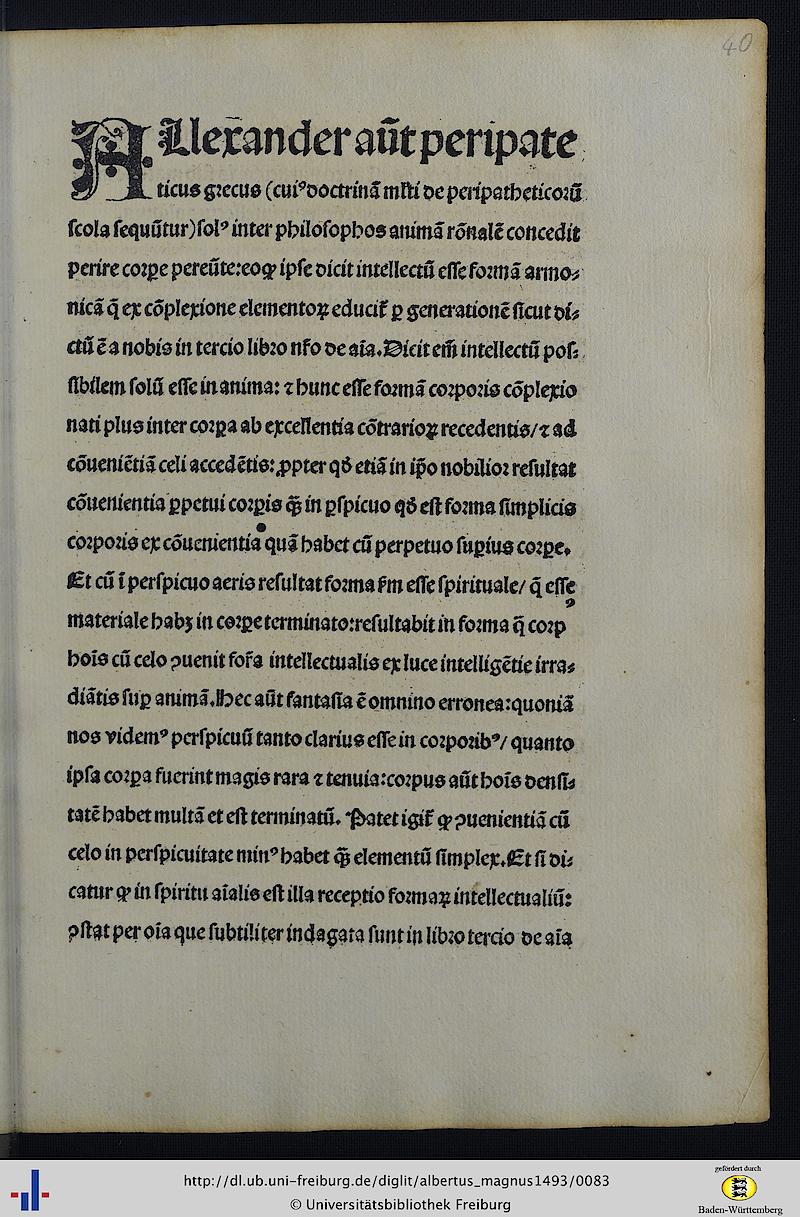 40
ALlexander aūt peripate
ticus grecus (cuiꝰ doctrinā mĺti de peripatheticorū
scola sequūtur) solꝰ inter philosophos animā rōnalē concedit
perire corꝑe pereūte: eoqꝫ ipse dicit intellectū esse formā armo⸗
nicā q̄ ex cōplexione elementoꝝ educit̃ ꝑ generationē sicut di⸗
ctū ē a nobis in tercio libro nr̃o de aīa. Dicit em̄ intellectū pos⸗
sibilem solū esse in anima: ⁊ hunc esse formā corporis cōplexio
nati plus inter corꝑa ab excellentia cōtrarioꝝ recedentis/ ⁊ ad
cōueniētiā celi accedētis: ꝓpter qđ etiā in ip̄o nobilior resultat
cōuenientia ꝑpetui corꝑis q̄ꝫ in ꝑspicuo qđ est forma simplicis
corporis ex cōuenientia quā habet cū perpetuo suꝑius corꝑe.
Et cū ī perspicuo aeris resultat forma ẜm esse spirituale/ q̄ esse
materiale habꝫ in corꝑe terminato: resultabit in forma q̄ corpꝰ
hoīs cū celo ꝯuenit for̃a intellectualis ex luce intelligētie irra⸗
diātis suꝑ animā. Hec aūt fantasia ē omnino erronea: quoniā
nos videmꝰ perspicuū tanto clarius esse in corporibꝰ/ quanto
ipsa corꝑa fuerint magis rara ⁊ tenuia: corpus aūt hoīs densi⸗
tatē habet multā et est terminatū. Patet igit̃ qꝫ ꝯuenientiā cū
celo in perspicuitate minꝰ habet q̄ꝫ elementū simplex. Et si di⸗
catur qꝫ in spiritu aīalis est illa receptio formaꝝ intellectualiū:
ꝯstat per oīa que subtiliter indagata sunt in libro tercio de aīa
http://dl.ub.uni-freiburg.de/diglit/albertus_magnus1493/0083
© Universitätsbibliothek Freiburg
gefördert durch
Baden-Württemberg